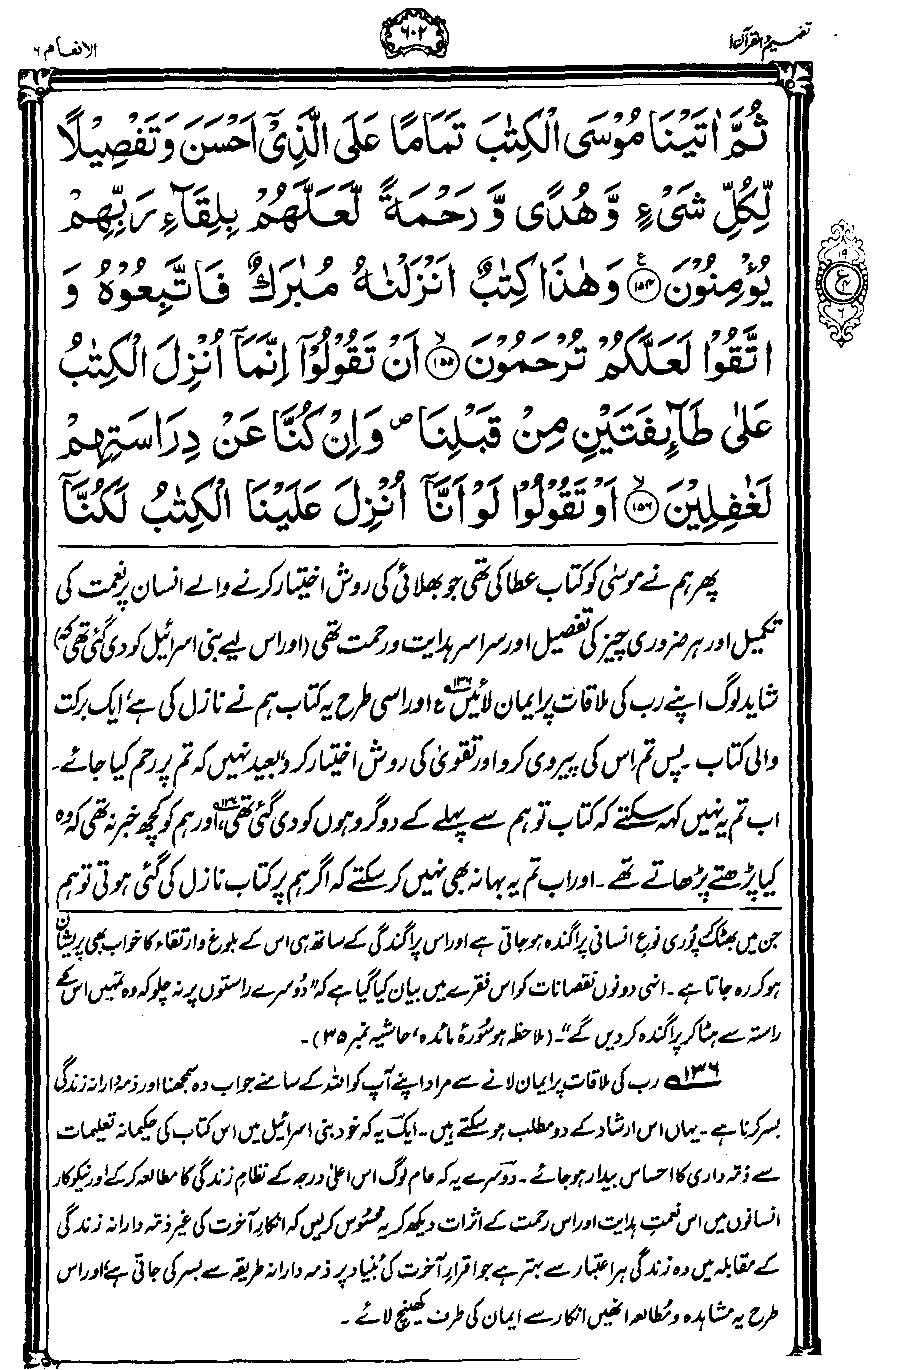 تفہیم القرآن ۱
۶۰۲
الانعام ۶
ثُمَّ اٰتَيْنَا مُوْسَى الْكِتٰبَ تَمَامًا عَلَى الَّذِيْۤ اَحْسَنَ وَتَفْصِيْلًا
لِّكُلِّ شَيْءٍ وَّهُدًى وَّرَحْمَةً لَّعَلَّهُمْ بِلِقَآءِ رَبِّهِمْ
يُؤْمِنُوْنَ ﴿۱۵۴﴾ۧ وَهٰذَا كِتٰبٌ اَنْزَلْنٰهُ مُبٰرَكٌ فَاتَّبِعُوْهُ وَ
اتَّقُوْا لَعَلَّكُمْ تُرْحَمُوْنَ ﴿۱۵۵﴾ۙ اَنْ تَقُوْلُوْۤا اِنَّمَاۤ اُنْزِلَ الْكِتٰبُ
عَلٰى طَآئِفَتَيْنِ مِنْ قَبْلِنَا ۪ وَاِنْ كُنَّا عَنْ دِرَاسَتِهِمْ
لَغٰفِلِيْنَ ﴿۱۵۶﴾ۙ اَوْ تَقُوْلُوْا لَوْ اَنَّاۤ اُنْزِلَ عَلَيْنَا الْكِتٰبُ لَكُنَّاۤ
۱۹
ع
۴
۶
پھر ہم نے موسیٰ کو کتاب عطا کی تھی جو بھلائی کی روش اختیار کرنے والے انسان پر نعمت کی
تکمیل اور ہر ضروری چیز کی تفصیل اور سراسر ہدایت و رحمت تھی (اور اس لیے بنی اسرائیل کو دی گئی تھی کہ)
شاید لوگ اپنے رب کی ملاقات پر ایمان لائیں ۱۳۶ ع اور اسی طرح یہ کتاب ہم نے نازل کی ہے، ایک برکت
والی کتاب۔ پس تم اس کی پیروی کرو اور تقویٰ کی روش اختیار کرو، بعید نہیں کہ تم پر رحم کیا جائے۔
اب تم یہ نہیں کہہ سکتے کہ کتاب تو ہم سے پہلے کے دو گروہوں کو دی گئی تھی، اور ہم کو کچھ خبر نہ تھی کہ وہ
کیا پڑھتے پڑھاتے تھے۔ اور اب تم یہ بہانہ بھی نہیں کر سکتے کہ اگر ہم پر کتاب نازل کی گئی ہوتی تو ہم
جن میں بھٹک کر پوری نوع انسانی پراگندہ ہو جاتی ہے اور اس پراگندگی کے ساتھ ہی اس کے بلوغ و ارتقاء کا خواب بھی پریشان
ہو کر رہ جاتا ہے۔ انہی دونوں نقصانات کو اس فقرے میں بیان کیا گیا ہے کہ "دوسرے راستوں پر نہ چلو کہ وہ تمہیں اس کے
راستہ سے ہٹا کر پراگندہ کر دیں گے"۔ (ملاحظہ ہو سورۂ مائدہ، حاشیہ نمبر ۳۵)۔
۱۳۶ رب کی ملاقات پر ایمان لانے سے مراد اپنے آپ کو اللہ کے سامنے جواب دہ سمجھنا اور ذمہ دارانہ زندگی
بسر کرنا ہے۔ یہاں اس ارشاد کے دو مطلب ہو سکتے ہیں۔ ایک یہ کہ خود بنی اسرائیل میں اس کتاب کی حکیمانہ تعلیمات
سے ذمہ داری کا احساس بیدار ہو جائے۔ دوسرے یہ کہ عام لوگ اس اعلیٰ درجہ کے نظام زندگی کا مطالعہ کر کے اور نیکوکار
انسانوں میں اس نعمت ہدایت اور اس رحمت کے اثرات دیکھ کر یہ محسوس کر لیں کہ انکار آخرت کی غیر ذمہ دارانہ زندگی
کے مقابلہ میں وہ زندگی ہر اعتبار سے بہتر ہے جو اقرار آخرت کی بنیاد پر ذمہ دارانہ طریقہ سے بسر کی جاتی ہے، اور اس
طرح یہ مشاہدہ و مطالعہ انھیں انکار سے ایمان کی طرف کھینچ لائے۔